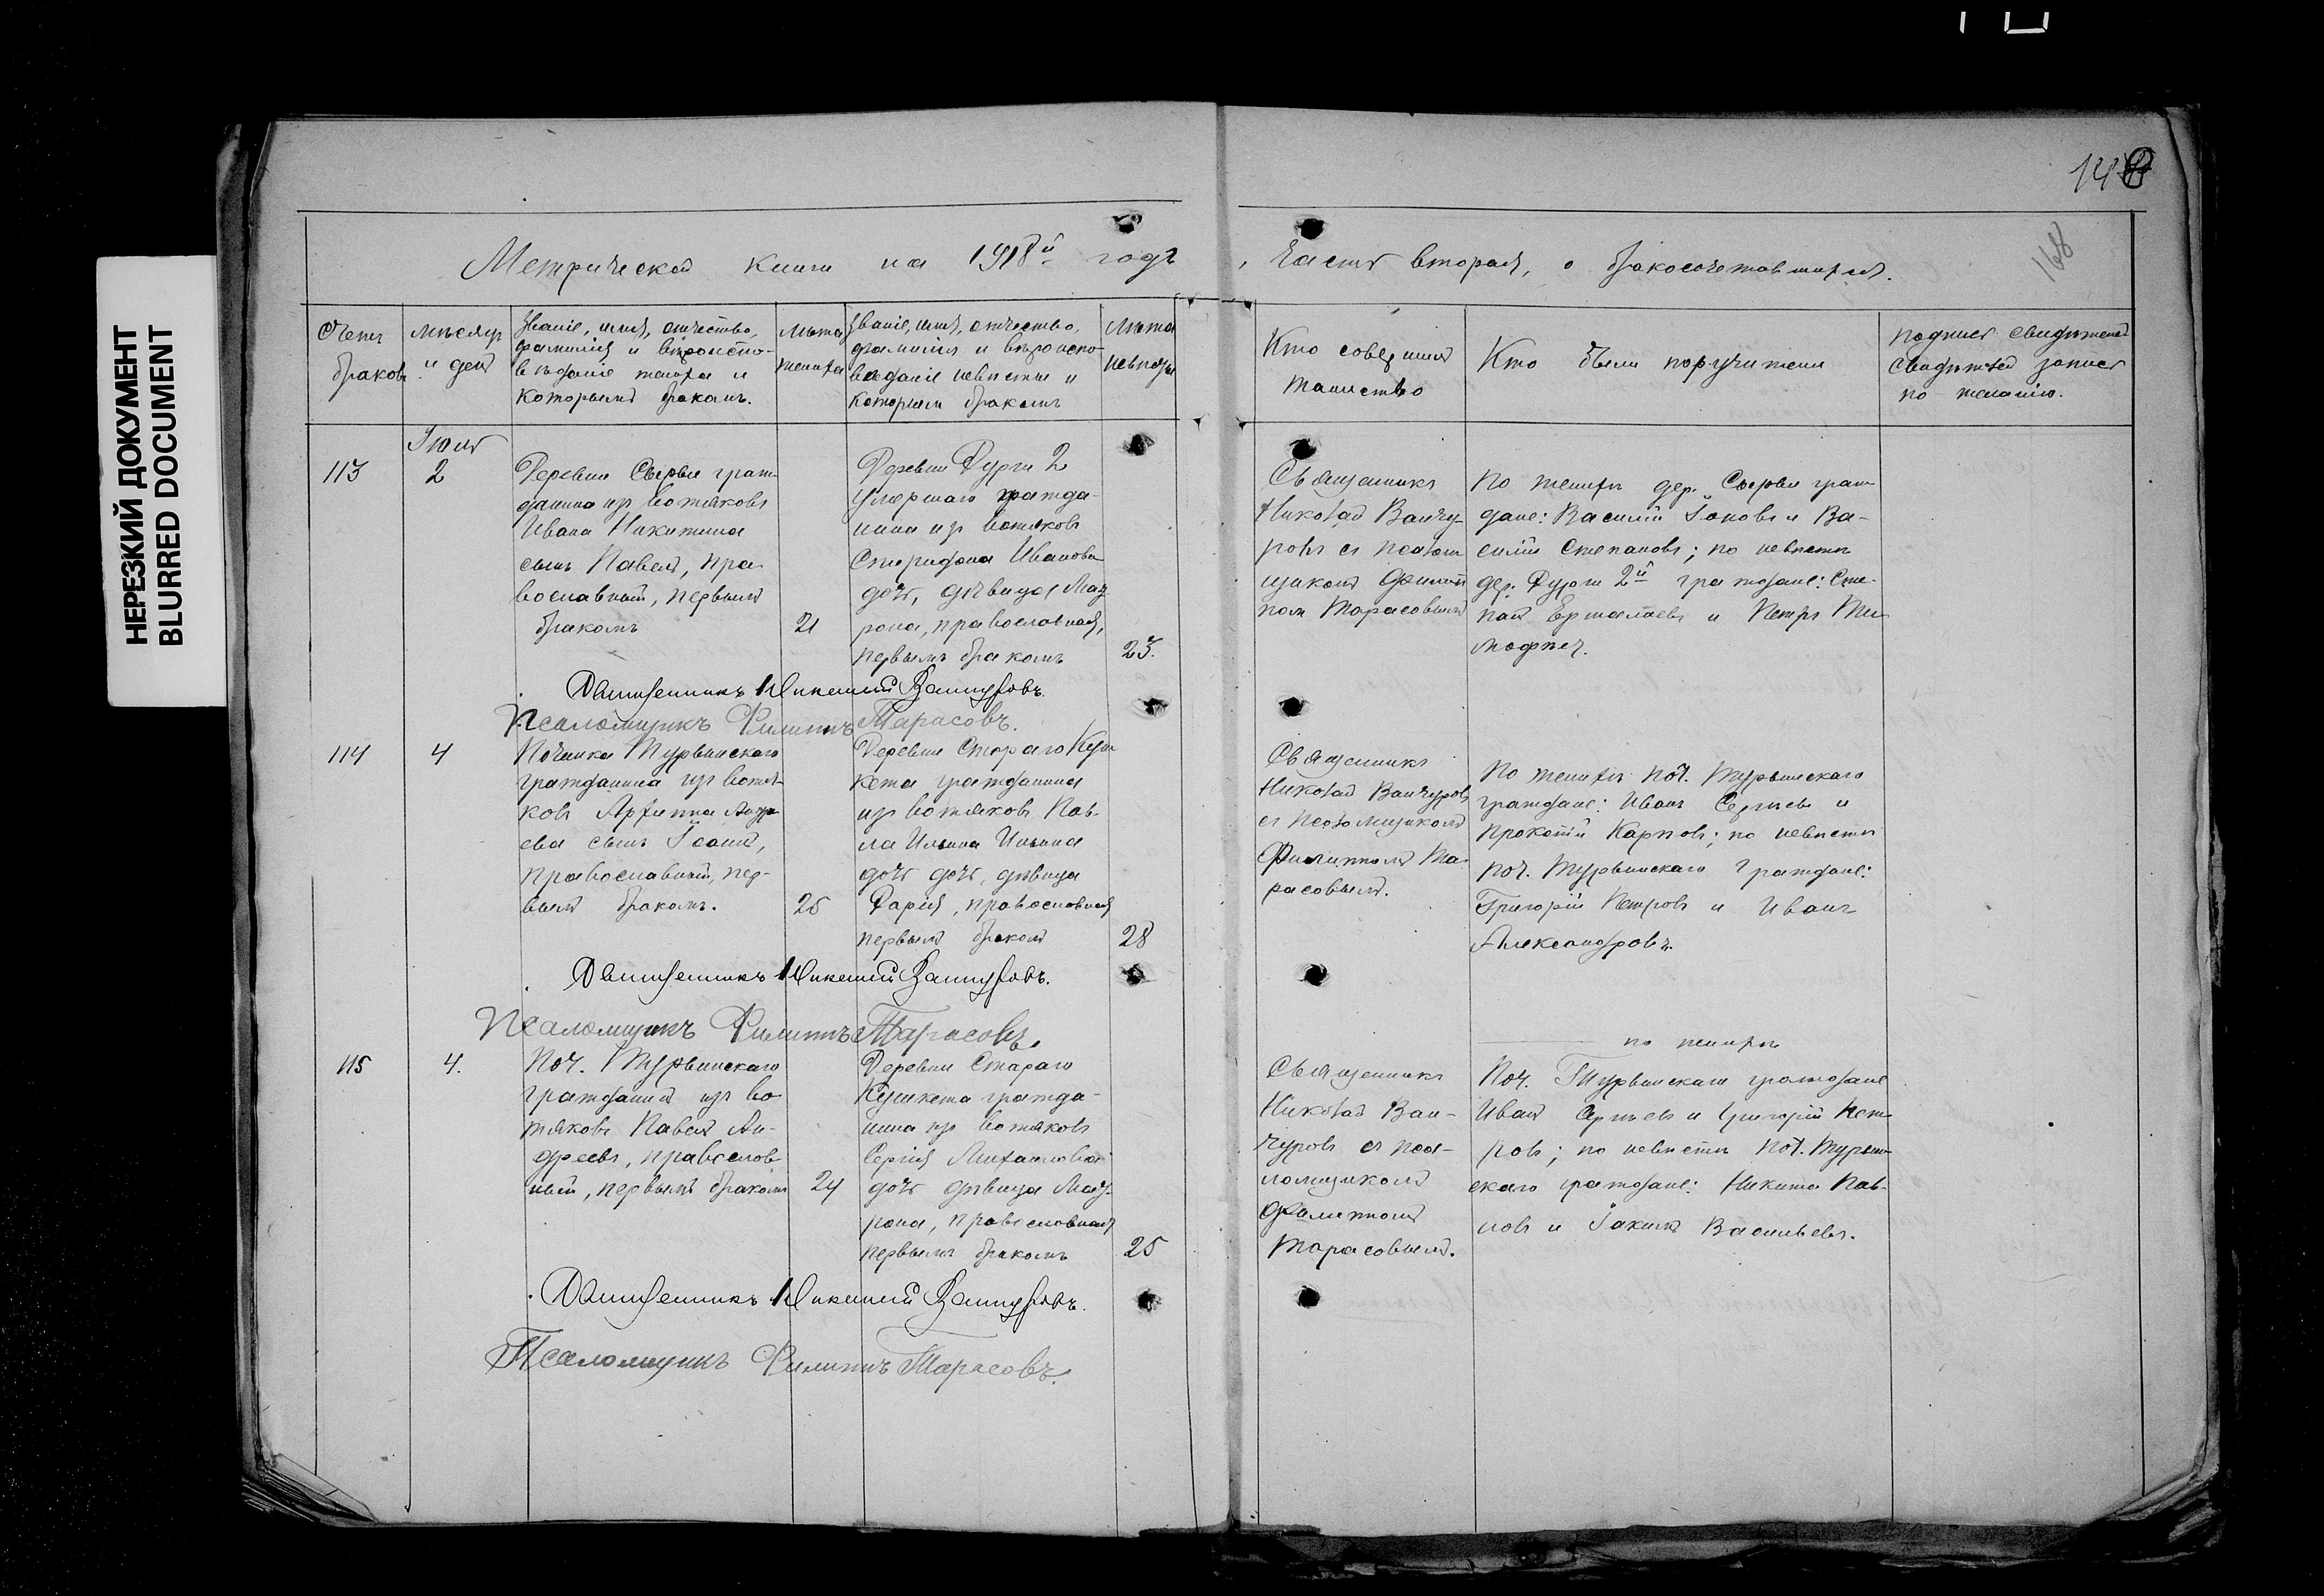 НЕРЕЗКИЙ ДОКУМЕНТ
BLURRED DOCUMENT
168
Метрической книги на 1918й годъ
, Часть вторая, о бракосочетавшихся.
Счетъ
браковъ
Мѣсяцъ
и день
Званіе, имя, отчество,
фамилія и вѣроиспо-
вѣданіе жениха и
которымъ бракомъ.
Лѣта
жениха
Званіе, имя, отчество,
фамилія и вѣроиспо-
вѣданіе невѣсты и
которымъ бракомъ
Лѣта
невѣсты
Кто совершилъ
таинство
Кто были поручители
Подпись свидѣтелей
записи
по желанію.
Іюля
113
2
Деревни Сырьи граж-
данина изъ вотяковъ
Ивана Никитина
сынъ Павелъ, пра-
вославный, первымъ
бракомъ
21
Деревни Дурги 2
умершаго гражда-
нина изъ вотяковъ
Спиридона Иванова
дочь, дѣвица Мат-
рона, православная,
первымъ бракомъ
23.
Священникъ
Николай Ванчу-
ровъ съ псалом
щикомъ Филип
пом Тарасовымъ
По женихѣ дер. Сырьи граж
дане: Василій Іоновъ и Ва-
силій Степановъ; по невѣстѣ
дер. Дурги 2й граждане: Сте-
пан и Петръ Ти
мофеев.
Священникъ Николай Ванчуровъ.
Псаломщикъ Филиппъ Тарасовъ.
114
4
Починка Турьинскаго
гражданина изъ вотя-
ковъ Архиппа Андре
ева сынъ Іоаннъ,
православный, пер-
вымъ бракомъ.
25
Деревни Стараго Куш
кета гражданина
изъ вотяковъ Пав-
ла Ильина Ильина
дочь дочь, дѣвица
Дарія, православная
первымъ бракомъ
28
Священникъ
Николай Ванчуровъ
съ псаломщикомъ
Филиппомъ Та-
расовымъ.
По женихѣ поч. Турьинскаго
граждане: Иванъ Сергѣевъ и
Прокопій Карповъ; по невѣстѣ
поч. Турьинскаго граждане:
Григорій Петровъ и Иванъ
Александровъ.
Священникъ Николай Ванчуровъ.
Псаломщикъ Филиппъ Тарасовъ.
115
4.
Поч. Турьинскаго
гражданинъ изъ во
тяковъ Павелъ Ан-
дреевъ, православ
ный, первымъ бракомъ
24
Деревни Стараго
Кушкета гражда-
нина изъ вотяковъ
Сергія Михайлова
дочь дѣвица Мат-
рона, православная
первымъ бракомъ
25
Священникъ
Николай Ван-
чуровъ съ пса-
ломщикомъ
Филиппомъ
Тарасовымъ.
по женихѣ
Поч. Турьинскаго граждане
Иванъ Сергѣевъ и Григорій Пет
ровъ; по невѣстѣ поч. Турьин-
скаго граждане: Никита Пав-
ловъ и Іакимъ Васильевъ.
Священникъ Николай Ванчуровъ.
Псаломщикъ Филиппъ Тарасовъ.